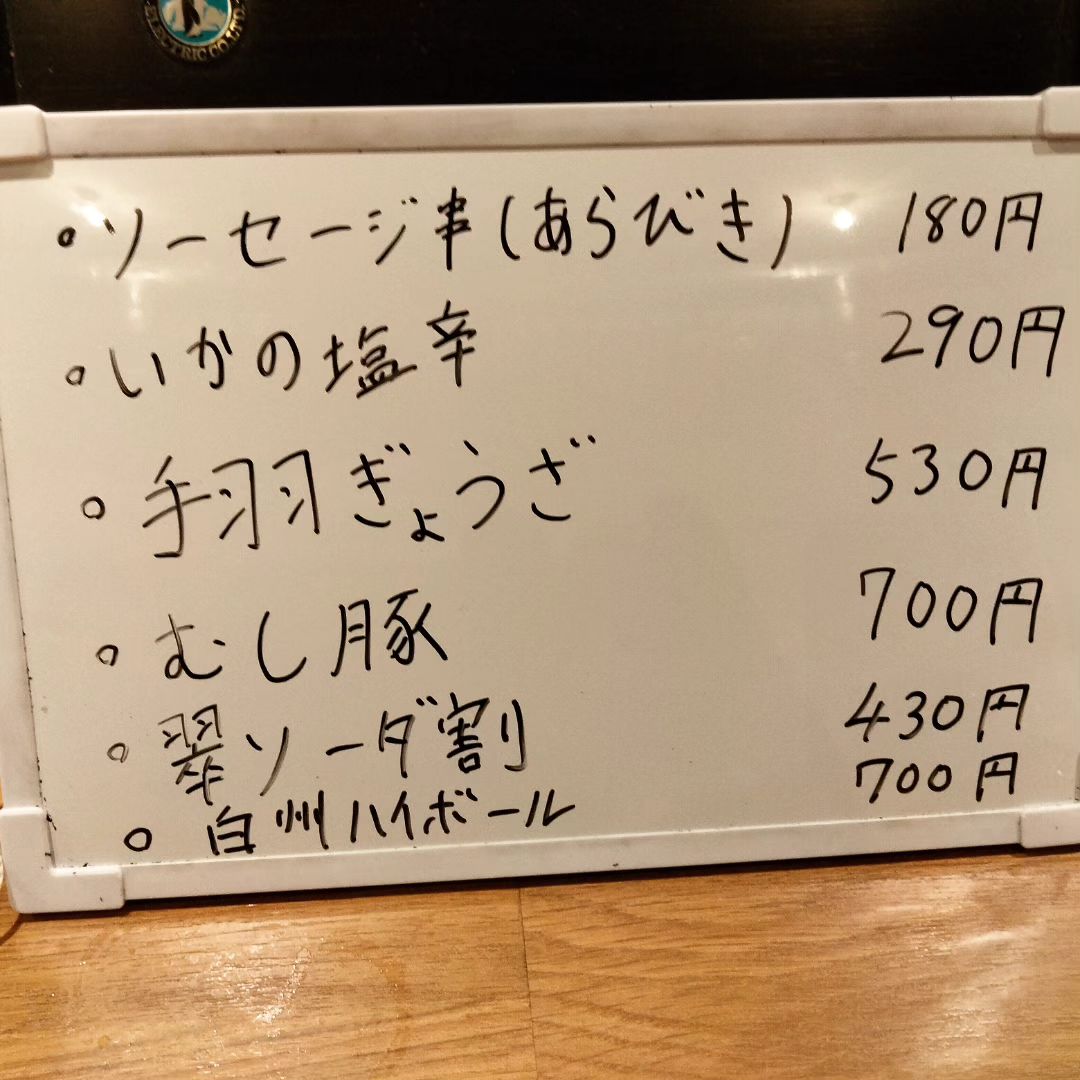 ELECTRIC CO.LTD
・ソーセージ串(あらびき) 180円
・いかの塩辛 290円
・手羽ぎょうざ 530円
・むし豚 700円
・翠ソーダ割 430円
・白州ハイボール 700円